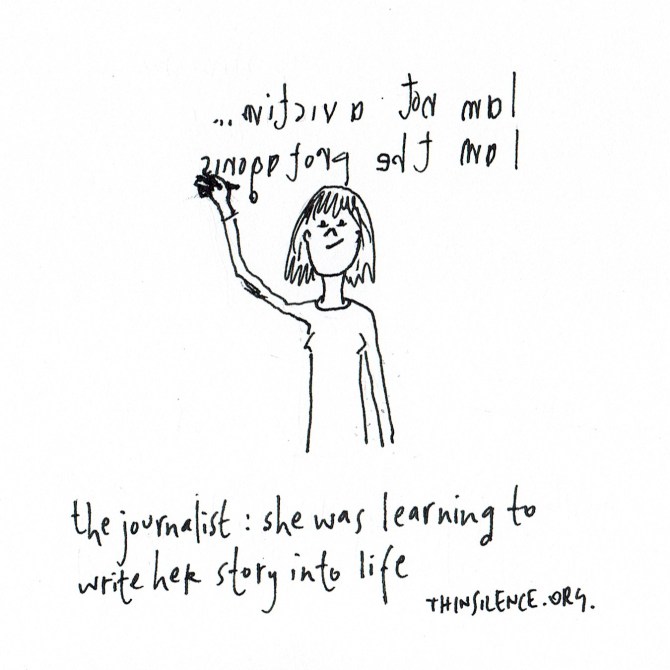 I am not a victim...
I am the protagonis
the journalist : she was learning to
write her story into life
THINSILENCE.ORG.